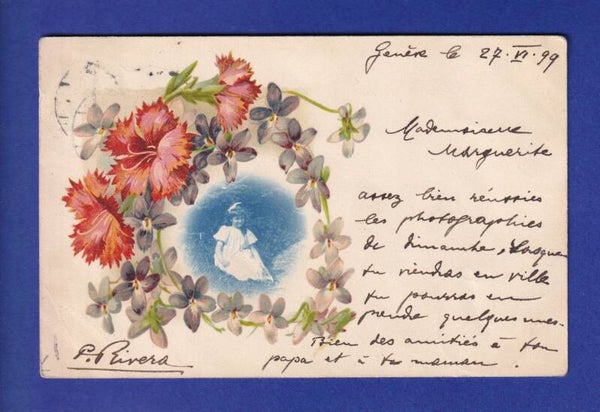 Genève le 27. VI. 99
Mademoiselle
Marguerite
assez bien réussies
les photographies
de dimanche, Lorsque
tu viendras en ville
tu pourras en
prendre quelques-unes.
Bien des amitiés à ton
papa et à ta maman.
P. Rivera